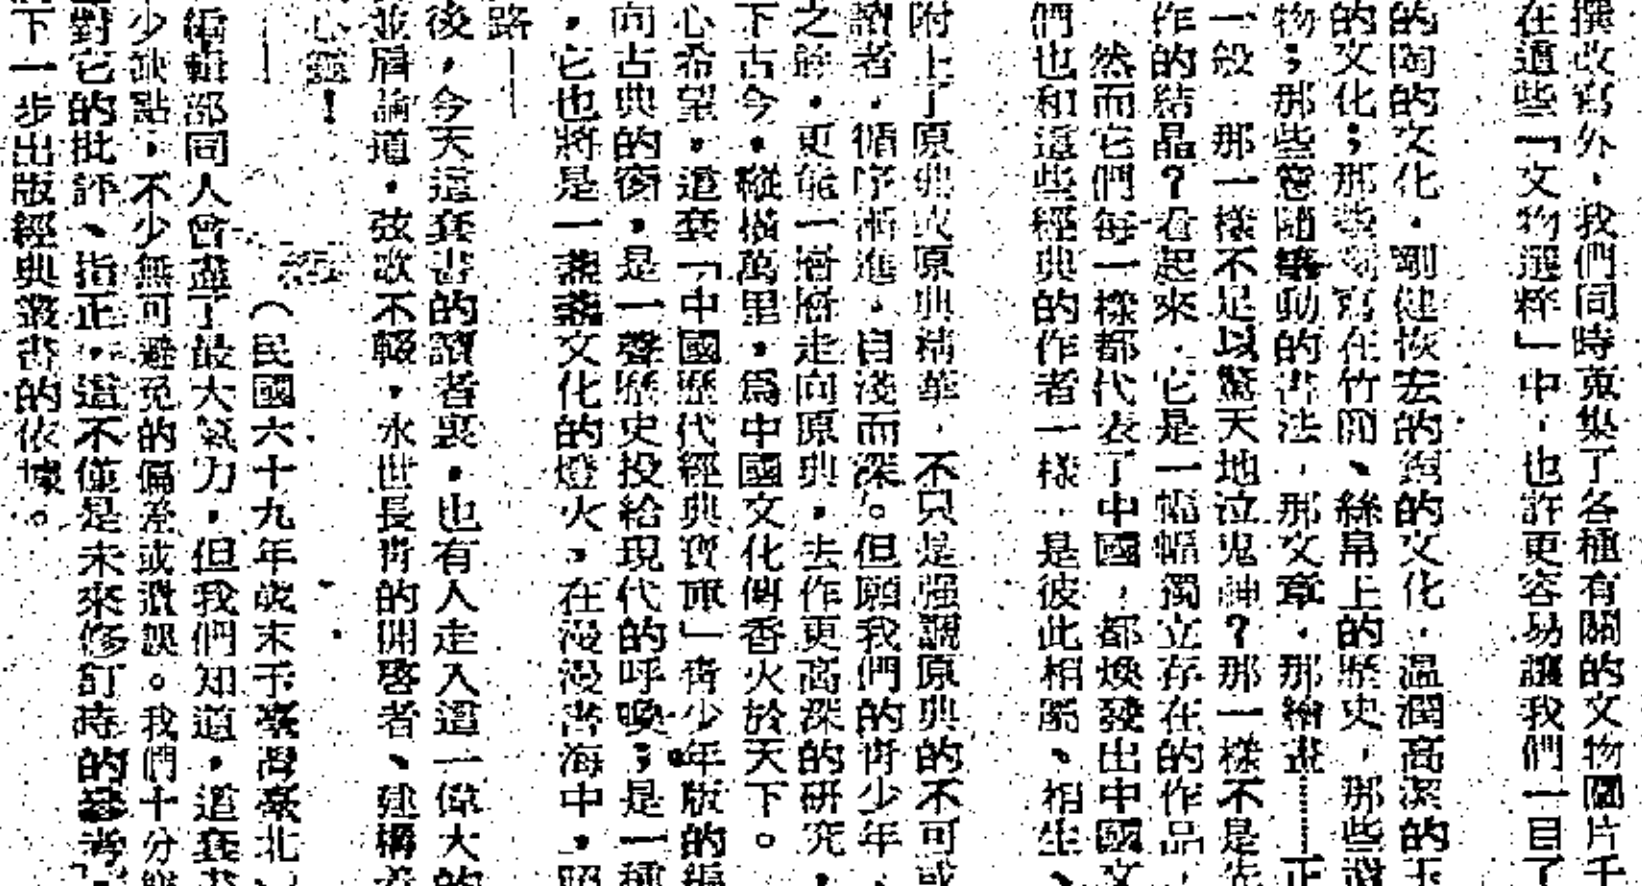 撰改寫外，我們同時蒐集了各種有關的文物圖片千
在這些「文物選粹」中，也許更容易讓我們一目了
的陶的文化，剛健恢宏的銅的文化，溫潤高潔的玉
的文化；那些書寫在竹簡、絲帛上的歷史，那些
物；那些隨動的書法，那文章，那繪畫……正
一般，那一樣不足以驚天地泣鬼神？那一樣不是先
作的結晶？看起來，它是一幅幅獨立存在的作品，
然而它們每一樣都代表了中國，都煥發出中國文
們也和這些經典的作者一樣，是彼此相屬、相生、
附上了原典或原典精華，不只是强調原典的不可或
讀者，循序漸進，自淺而深。但願我們的青少年，
之餘，更能一層層走向原典，去作更高深的研究，
下古今，縱橫萬里，爲中國文化傳香火於天下。
心希望，這套「中國歷代經典寶庫」青少年版的編
向古典的窗，是一聲歷史投給現代的呼喚；是一種
，它也將是一盞盞文化的燈火，在漫漫書海中，照
路——
後，今天這套書的讀者裏，也有人走入這一偉大的
並肩論道，弦歌不輟，永世長青的開啓者、建構者
心靈！
——（民國六十九年歲末于臺灣臺北）
編輯部同人曾盡了最大氣力，但我們知道，這套書
少缺點，不少無可避免的偏差或遺誤。我們十分
對它的批評、指正，這不僅是未來修訂時的參考，
下一步出版經典叢書的依據。